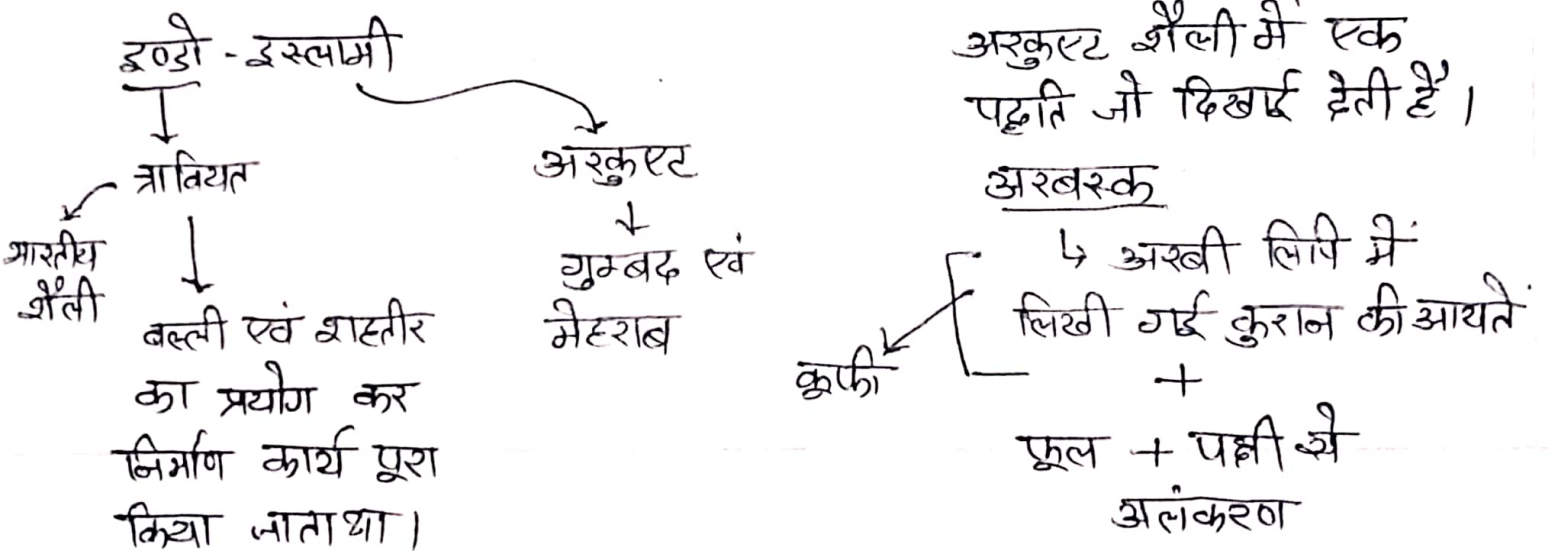 इण्डो - इस्लामी
त्रावियत
भारतीय
शैली
बल्ली एवं शहतीर
का प्रयोग कर
निर्माण कार्य पूरा
किया जाता था।
अरकुएट
गुम्बद एवं
मेहराब
अरकुएट शैली में एक
पद्धति जो दिखाई देती है।
अरबस्क
↳ अरबी लिपि में
लिखी गई कुरान की आयतें
कूफी
+
फूल + पक्षी से
अलंकरण